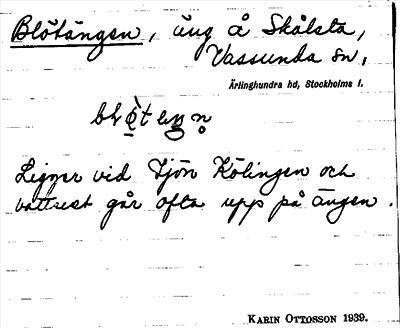 Blötängen, äng å Skålsta,
Vassunda sn,
Ärlinghundra hd, Stockholms l.
Ligger vid sjön Kölingen och
vattnet går ofta upp på ängen.
KARIN OTTOSSON 1939.